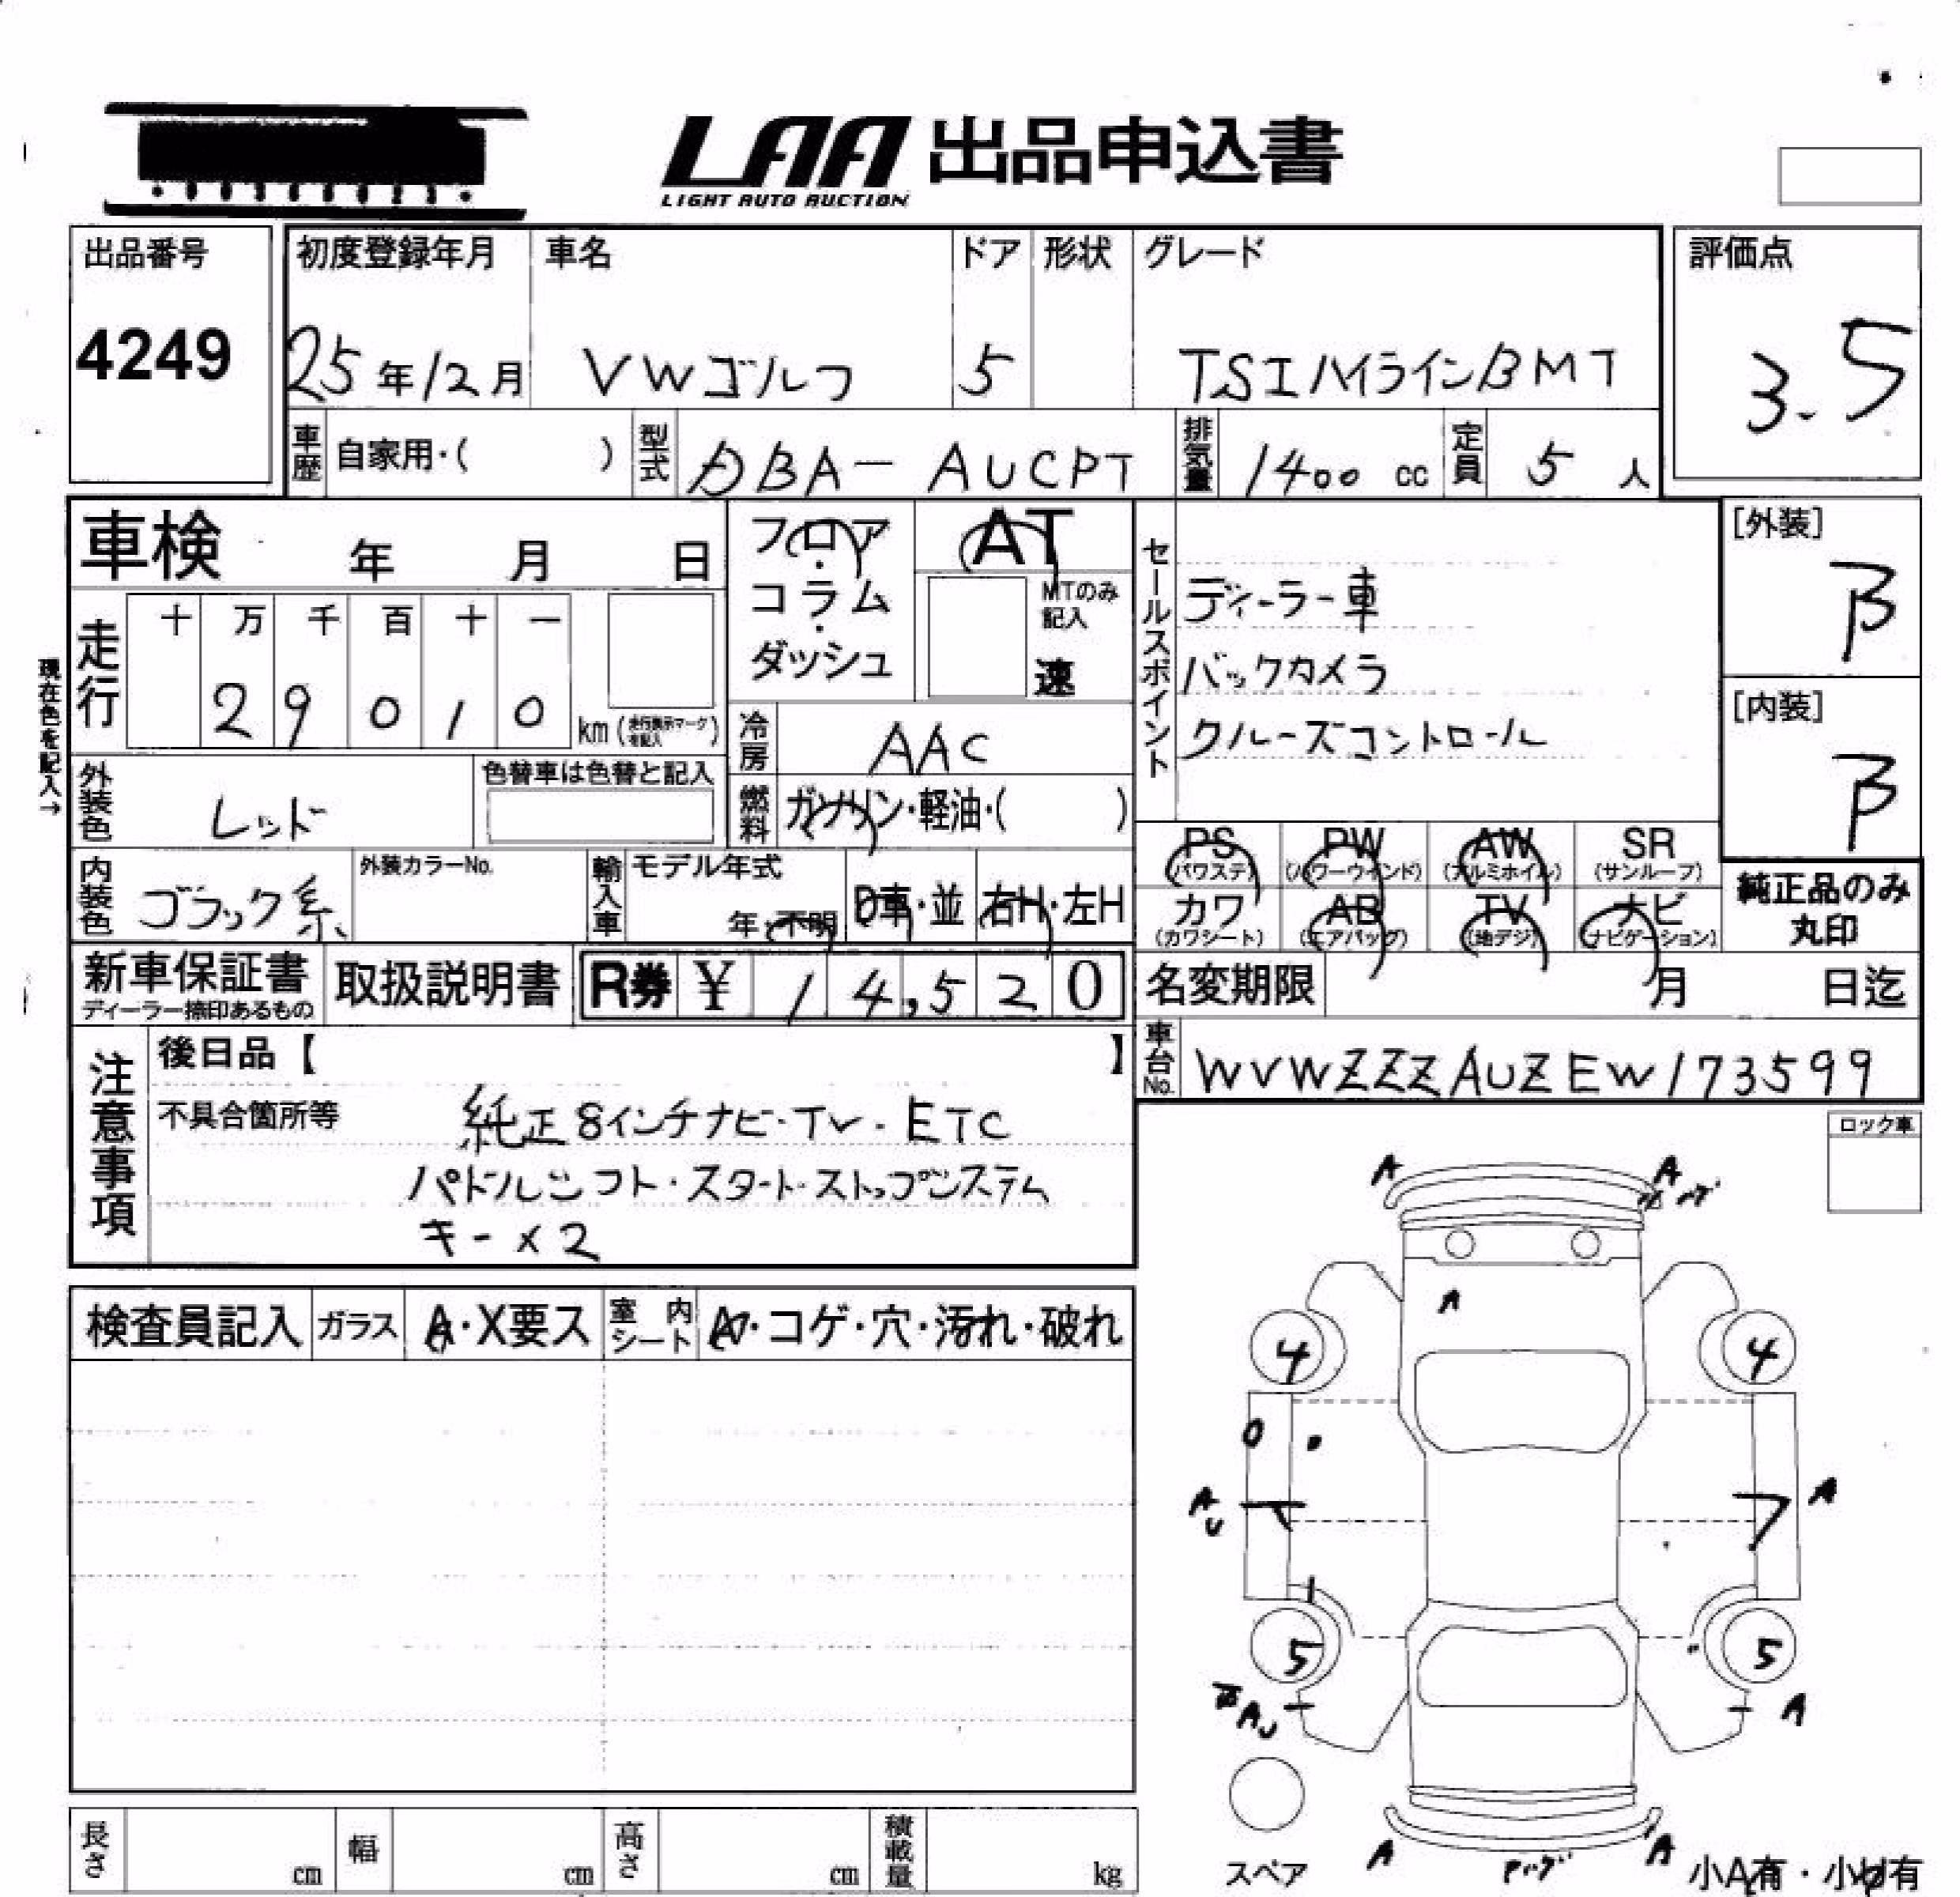 LAA 出品申込書
LIGHT AUTO AUCTION
出品番号
4249
初度登録年月 車名 ドア 形状 グレード
25年12月 VWゴルフ 5 TSIハイラインBMT
評価点
3.5
車歴 自家用・( ) 型式 DBA-AUCPT 排気量 1400 cc 定員 5 人
車検 年 月 日
フロア・コラム・ダッシュ
AT
MTのみ記入
速
セールスポイント
ディーラー車
バックカメラ
クルーズコントロール
[外装]
B
[内装]
B
現在色を記入→
走行 十 万 千 百 十 一
2 9 0 1 0 km (走行表示マークを記入)
冷房 AAC
外装色 レッド 色替車は色替と記入
燃料 ガソリン・軽油・( )
PS (パワステ) PW (パワーウインド) AW (アルミホイル) SR (サンルーフ)
カワ (カワシート) AB (エアバッグ) TV (地デジ) ナビ (ナビゲーション)
純正品のみ
丸印
内装色 ブラック系 外装カラーNo. 輸入車 モデル年式 年・不明 D車・並 右H・左H
新車保証書
ディーラー捺印あるもの
取扱説明書 R券 ¥ 1 4,5 2 0
名変期限 月 日迄
車台No. WVWZZZAUZEW173599
注意事項
後日品【 】
不具合箇所等 純正8インチナビ・TV・ETC
パドルシフト・スタートストップシステム
キー×2
ロック車
検査員記入 ガラス A・X要ス 室内シート A・コゲ・穴・汚れ・破れ
A A
A
4 4
A
U
A
5 5
AU A
スペア
A A
小A有・小U有
長さ cm 幅 cm 高さ cm 積載量 kg